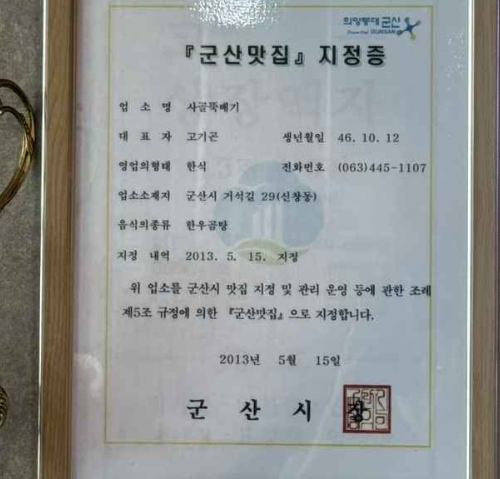 희망통대 군산
『군산맛집』 지정증
업 소 명 사골뚝배기
대 표 자 고기곤 생년월일 46. 10. 12
영업의형태 한식 전화번호 (063)445-1107
업소소재지 군산시 거석길 29(신창동)
음식의종류 한우곰탕
지정 내역 2013. 5. 15. 지정
위 업소를 군산시 맛집 지정 및 관리 운영 등에 관한 조례
제5조 규정에 의한 『군산맛집』으로 지정합니다.
2013년 5월 15일
군 산 시 장